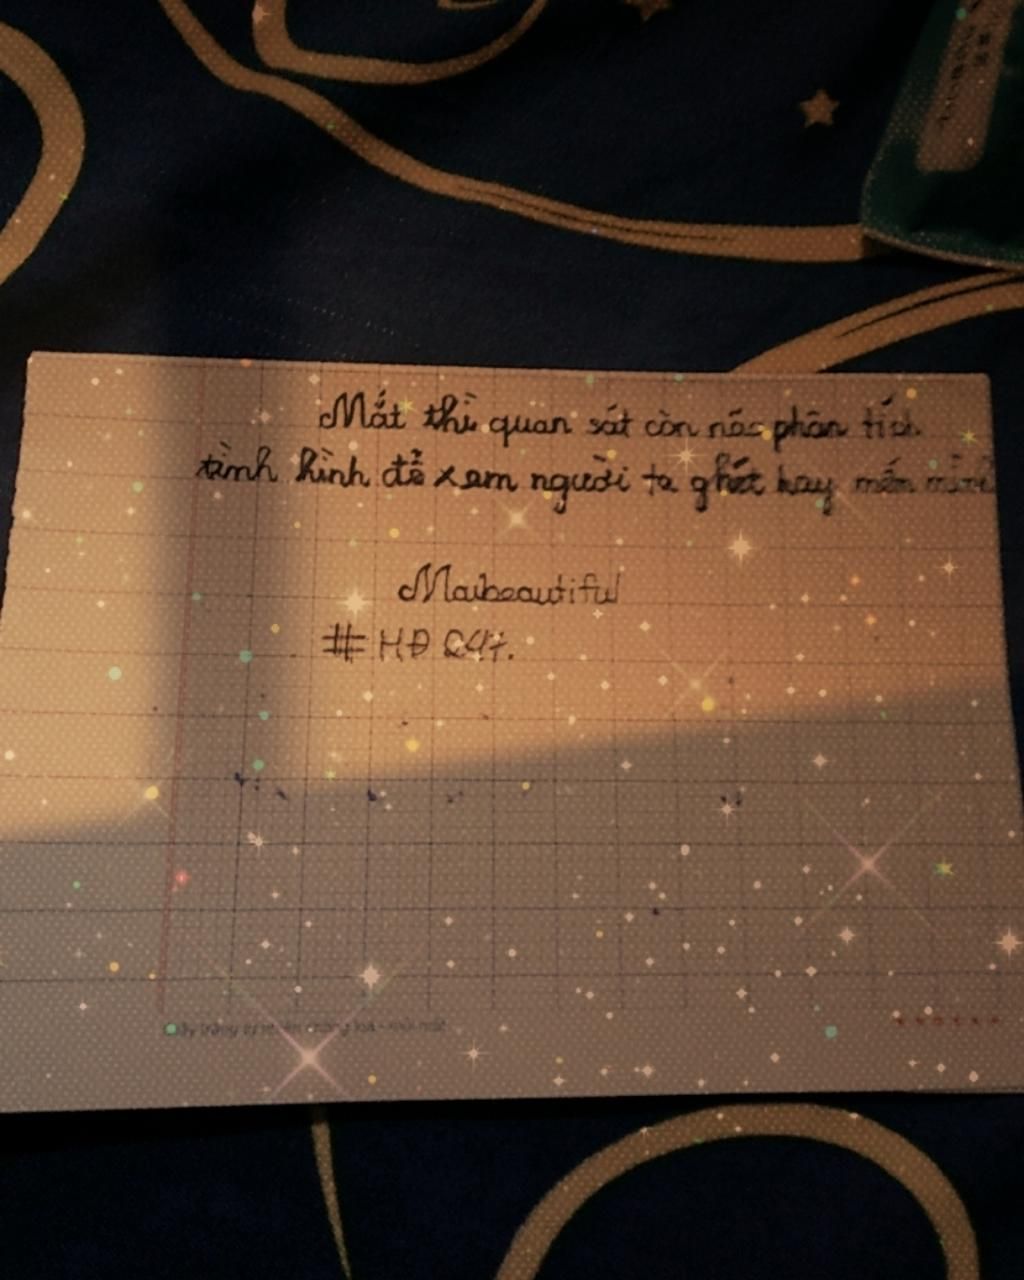 Mắt thì quan sát còn não phân tích
tình hình để xem người ta ghét hay mến mình
Maibeautiful
# HĐ